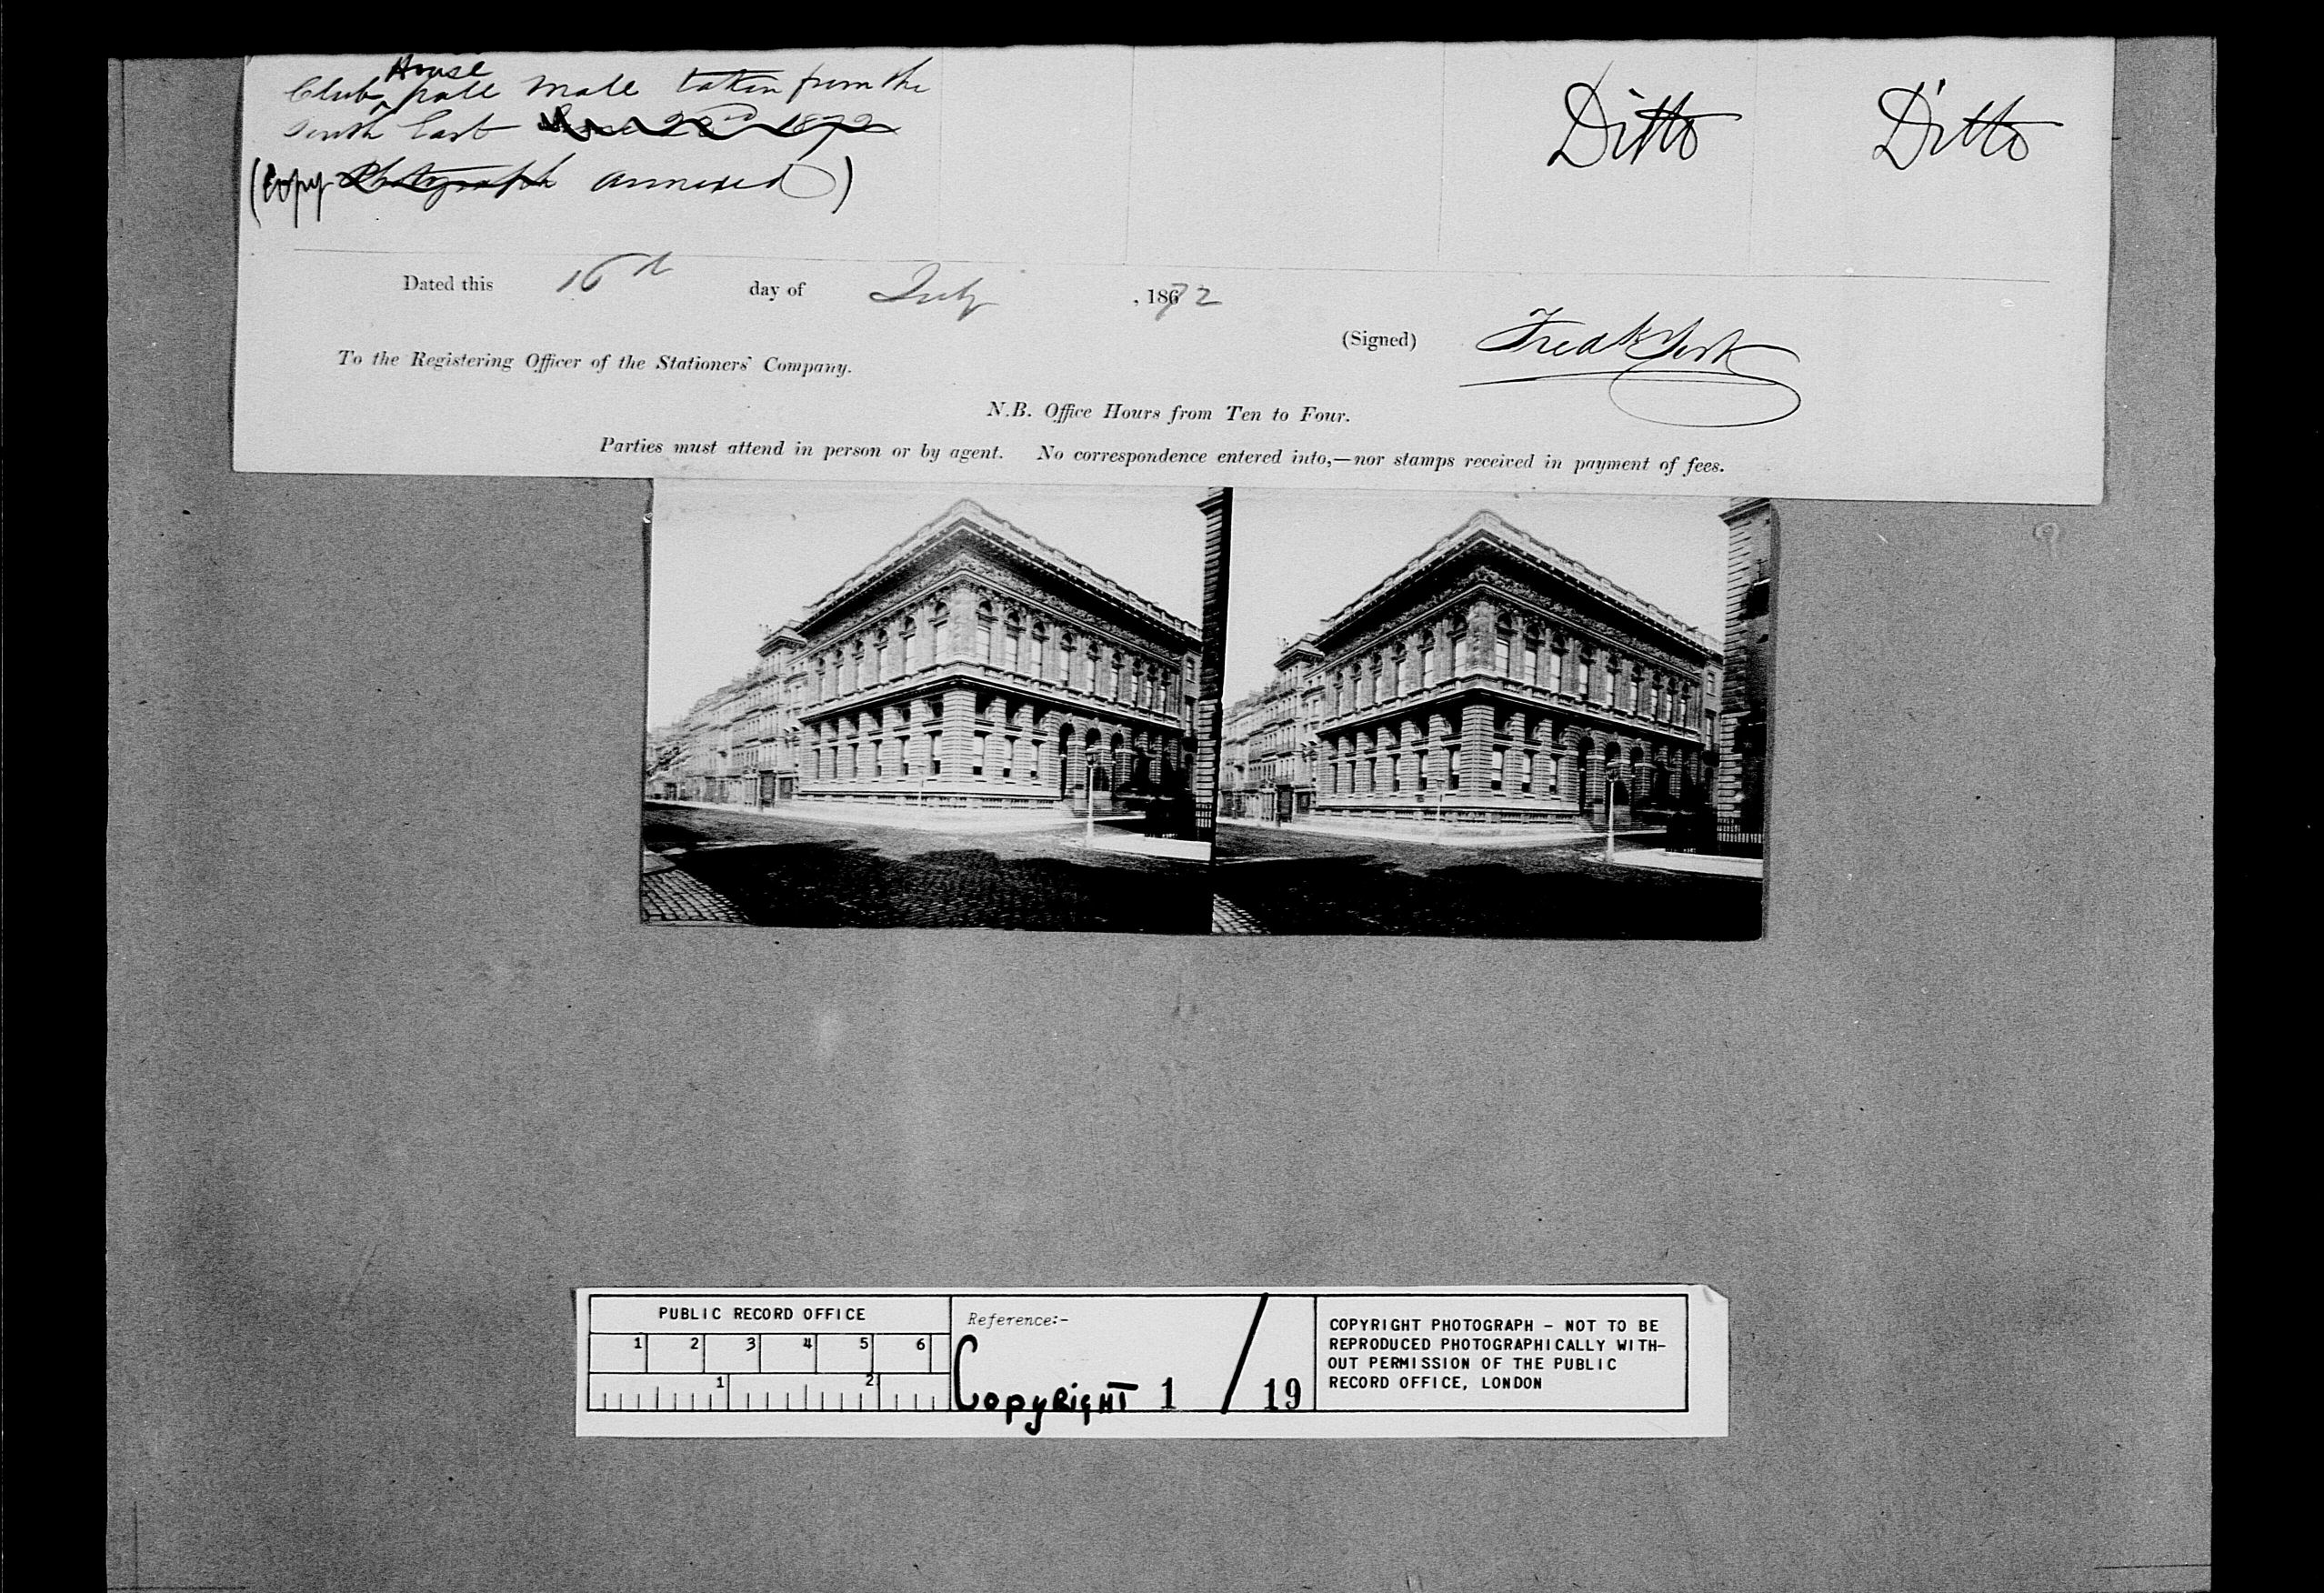 House
Club Pall Mall taken from the Ditto Ditto
South East June 22nd 1872
(Copy Photograph annexed)
Dated this 16th day of July , 1872
(Signed) Fredk York
To the Registering Officer of the Stationers' Company.
N.B. Office Hours from Ten to Four.
Parties must attend in person or by agent. No correspondence entered into,—nor stamps received in payment of fees.
PUBLIC RECORD OFFICE
1 2 3 4 5 6
1 2
Reference:-
Copyright 1 / 19
COPYRIGHT PHOTOGRAPH - NOT TO BE
REPRODUCED PHOTOGRAPHICALLY WITH-
OUT PERMISSION OF THE PUBLIC
RECORD OFFICE, LONDON